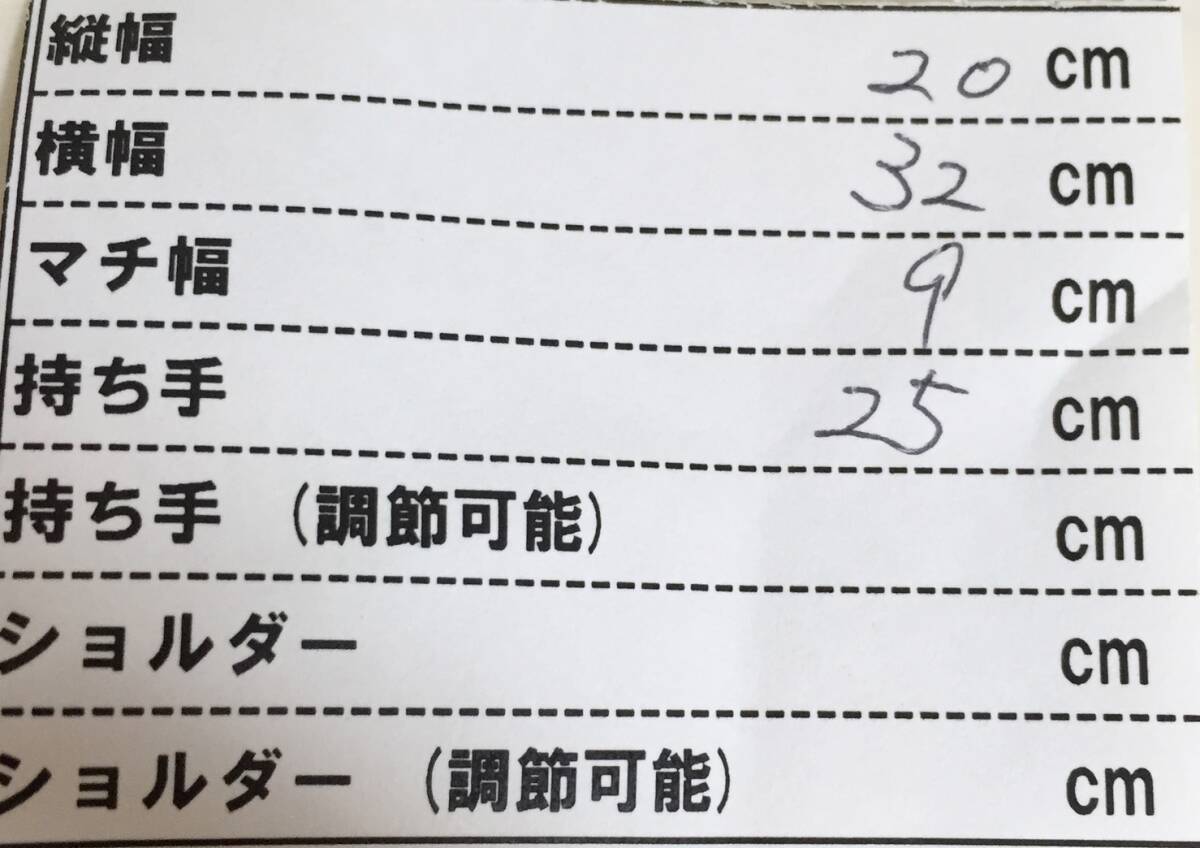 縦幅 20 cm
横幅 32 cm
マチ幅 9 cm
持ち手 25 cm
持ち手 (調節可能) cm
ショルダー cm
ショルダー (調節可能) cm